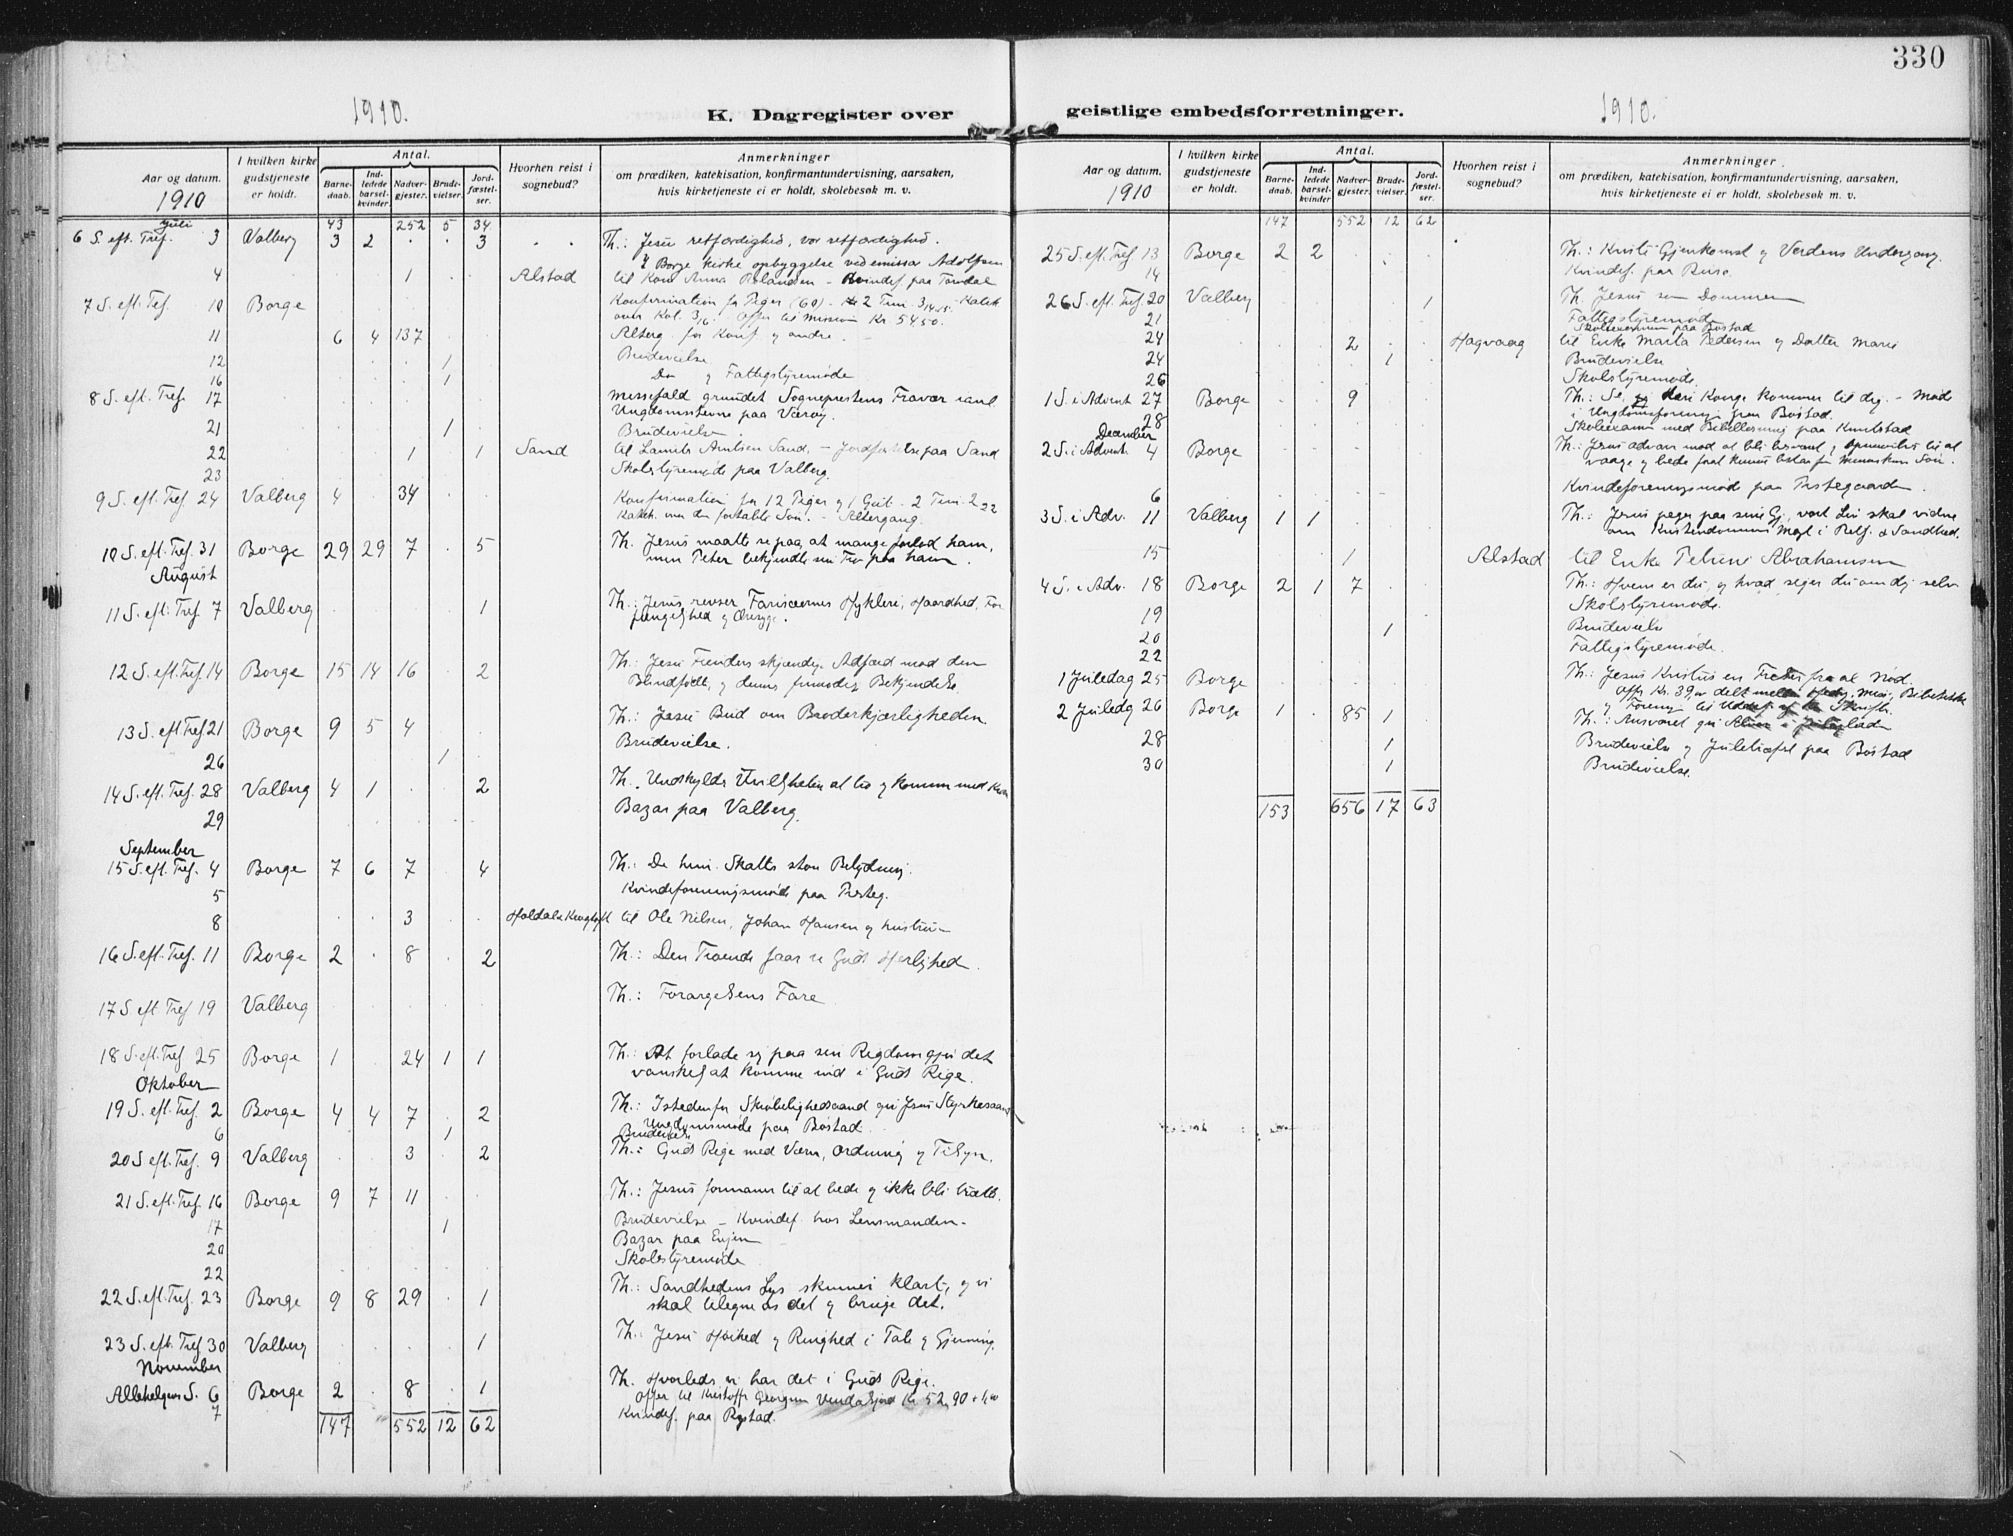 330
1910.
K. Dagregister over
geistlige embedsforretninger.
1910.
Aar og datum.
1910
I hvilken kirke gudstjeneste er holdt.
Antal.
Barne-daab.
Ind-ledede barsel-kvinder.
Nadver-gjester.
Brude-vielser.
Jord-fæstel-ser.
Hvorhen reist i sognebud?
Anmerkninger
om prædiken, katekisation, konfirmantundervisning, aarsaken,
hvis kirketjeneste ei er holdt, skolebesøk m. v.
Juli 43 252 5 34
6 S. eft. Tref. 3 Valberg 3 2 . . 3 Th.: Jesu retfærdighed, vor retfærdighed.
I Borge kirke opbyggelse ved emissær Adolfsen
4 1 Alstad til Kone Anna - Kvindef. paa
7 S. eft. Tref. 10 Borge Konfirmation for Piger (60) - 2 Tim. 3 14-15. Katek
over Kol. 3 16. Offer til Mission Kr. 54.50.
11 6 4 137 Alterg. for Konf. og andre.
12 1 Brudevielse
16 1 Do og Fattigstyremøde
8 S. eft. Tref. 17 Messefald grundet Sogneprestens Fravær
Ungdomsstevne paa Værøy.
21 1 Brudevielse
22 1 1 Sand til Arntsen Sand. - Jordfæstelse paa Sand
23 Skolestyremøde paa Valberg.
9 S. eft. Tref. 24 Valberg 4 34 Konfirmation for 12 Piger og 1 Gut. 2 Tim. 2 22
Katek. over den fortabte Søn. - Altergang.
10 S. eft. Tref. 31 Borge 29 29 7 . 5 Th. Jesus maatte se paa, at mange forlod ham,
men Peter bekjendte sin Tro paa ham.
August
11 S. eft. Tref. 7 Valberg 1 Th.: Jesus revser Farisæernes Hykleri, Haardhed, For
fængelighed og Æresyge.
12 S. eft. Tref. 14 Borge 15 14 16 . 2 Th.: Jesu Fienders skjændige Adfærd mod den
Blindfødte, og dennes frimodige Bekjendelse.
13 S. eft. Tref. 21 Borge 9 5 4 Th.: Jesu Bud om Broderkjærligheden
26 1 Brudevielse.
14 S. eft. Tref. 28 Valberg 4 1 . 2 Th. Undskylder Uvilligheten at tro og komme med
29 Bazar paa Valberg.
September
15 S. eft. Tref. 4 Borge 7 6 7 4 Th.: De him. Skatters store Betydning.
5 Kvindeforeningsmøde paa Presteg.
8 3 til Ole Nilsen, Johan Hansen og hustru
16 S. eft. Tref. 11 Borge 2 . 8 . 2 Th.: Den Troende faar se Guds Herlighed.
17 S. eft. Tref. 19 Valberg Th.: Forargelsens Fare
18 S. eft. Tref. 25 Borge 1 24 1 1 Th.: At forlade sig paa sin Rigdom gjør det
vanskeligt at komme ind i Guds Rige.
Oktober
19 S. eft. Tref. 2 Borge 4 4 7 . 2 Th.: Istedenfor Skrøbelighedsaand giver Jesus Styrkesaand
Ungdomsmøde paa Bøstad.
6 1 Brudevielse
20 S. eft. Tref. 9 Valberg 3 2 Th.: Guds Rige med Værn, Ordning og Tilsyn.
21 S. eft. Tref. 16 Borge 9 7 11 Th.: Jesus formaner til at bede og ikke bli trætte.
17 1 Brudevielse - Kvindef. hos Lensmanden.
20 Bazar paa
22 Skolestyremøde
22 S. eft. Tref. 23 Borge 9 8 29 . 1 Th.: Sandhedens Lys skinner klart, og vi
skal tilegne os det og bruge det.
23 S. eft. Tref. 30 Valberg 1 Th.: Jesu Høihed og Ringhed i Tale og Gjerning.
November
Allehelgens S. 6 Borge 2 . 8 . 1 Th. Hvorledes vi har det i Guds Rige.
Offer til Kr. 52,90
7 Kvindef. paa
147 552 12 62
Aar og datum.
1910
I hvilken kirke gudstjeneste er holdt.
Antal.
Barne-daab.
Ind-ledede barsel-kvinder
Nadver-gjester.
Brude-vielser.
Jord-fæstel-ser.
Hvorhen reist i sognebud?
Anmerkninger
om prædiken, katekisation, konfirmantundervisning, aarsaken,
hvis kirketjeneste ei er holdt, skolebesøk m. v.
147 552 12 62
25 S. eft. Tref. 13 Borge 2 2 Th.: Kristi Gjenkomst og Verdens Undergang.
14 Kvindef. paa
26 S. eft. Tref. 20 Valberg 1 Th. Jesus som Dommer
21 Fattigstyremøde
Skoleeksamen paa Bøstad
24 2 Hagvaag til Enke Marta Pedersen og Datter Marie
24 1 Brudevielse
26 Skolstyremøde.
1 S. i Advent 27 Borge 9 Th.: Se, din Konge kommer til dig. - Møde
i Ungdomsforening paa Bøstad.
28 Skoleexamen med Bibellæsning paa Knutstad
December
2 S. i Advent. 4 Borge Th.: Jesus advarer mod at bli og opmuntrer til at
vaage og bede for Menneskens Søn.
6 Kvindeforeningsmøde paa Prestegaarden.
3 S. i Adv. 11 Valberg 1 1 Th.: Jesus peger paa sine Gj., vort Liv skal vidne
om Kristendommens Magt i Retf. & Sandhed.
15 1 Alstad til Enke Petrine Abrahamsen
4 S. i Adv. 18 Borge 2 1 7 Th.: Hvem er du, og hvad siger du om dig selv
19 Skolstyremøde.
20 1 Brudevielse
22 Fattigstyremøde.
1 Juledag 25 Borge Th.: Jesus Kristus en Frelser fra al Nød.
Offer Kr. 39, delt
2 Juledag 26 Borge 1 . 85 1 Th.: Ansvaret
28 1 Brudevielse og Juletræfest paa Bøstad
30 1 Brudevielse.
153 656 17 63